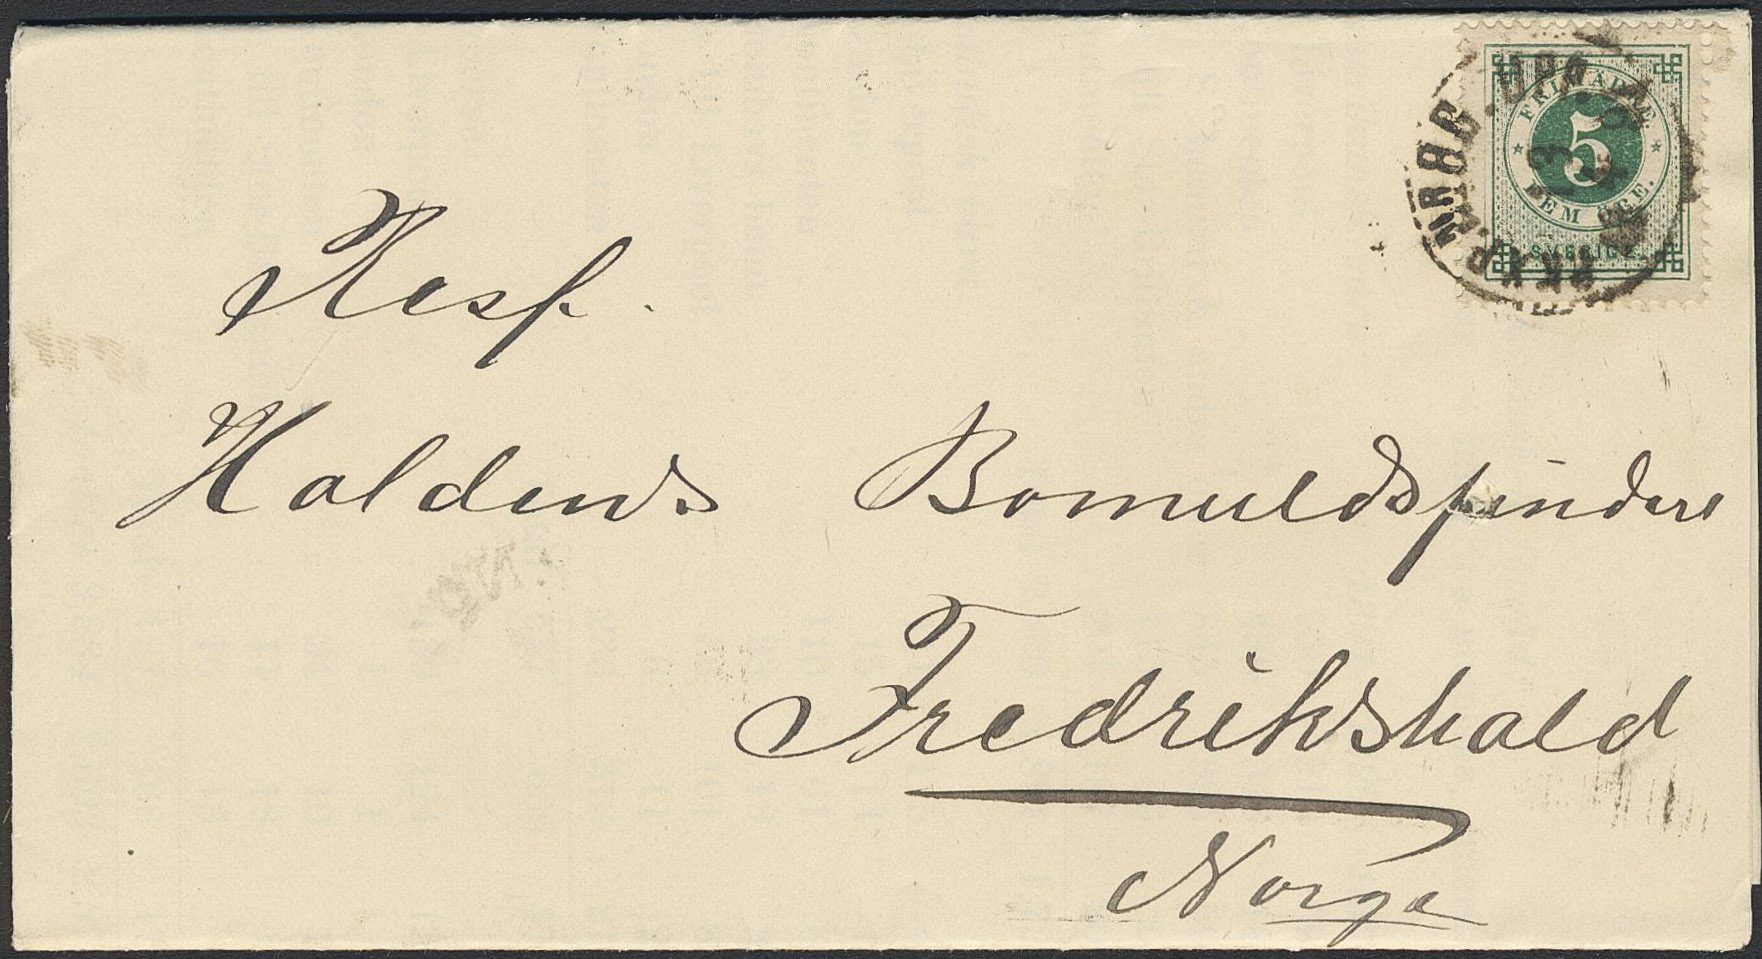 FRIMÄRKE.
5
FEM ÖRE.
SVERIGE.
Resp.
Haldens Bomuldspinderi
Fredrikshald
Norge